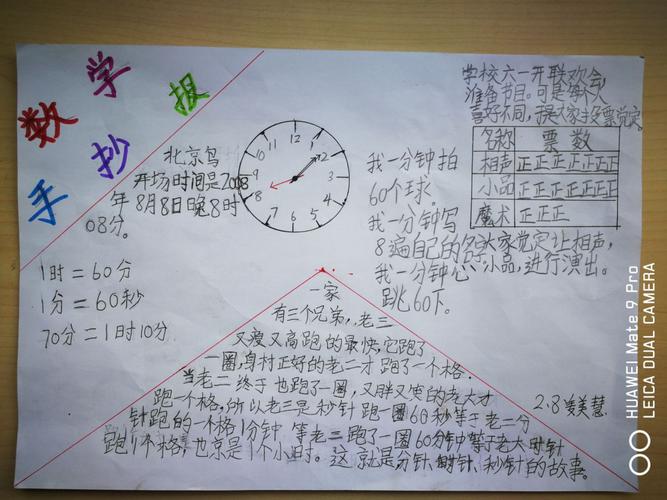 数学
手抄报
北京鸟
开场时间是2008
年8月8日晚8时
08分。
12
1
2
3
4
5
6
7
8
9
10
11
1时=60分
1分=60秒
70分=1时10分
我一分钟拍
60个球。
我一分钟写
8遍自己的名
我一分钟心
跳60下。
学校六一开联欢会,
准备节目。可是每个人
喜好不同,
名称 票数
相声 正正正正正正
小品 正正正正正正
魔术 正正正
大家觉定让相声,
小品,进行演出。
一家
有三个兄弟,老三
又瘦又高跑的最快,它跑了
一圈,身材正好的老二才跑了一个格。
当老二终于也跑了一圈,又胖又笨的老大才
跑一个格,所以老三是秒针跑一圈60秒等于老二分
针跑的一个格1分钟,等老二跑了一圈60分钟等于老大时针
跑1个格,也京是1个小时。这就是分针、时针、秒针的故事。
2.8 美慧
HUAWEI Mate 9 Pro
LEICA DUAL CAMERA